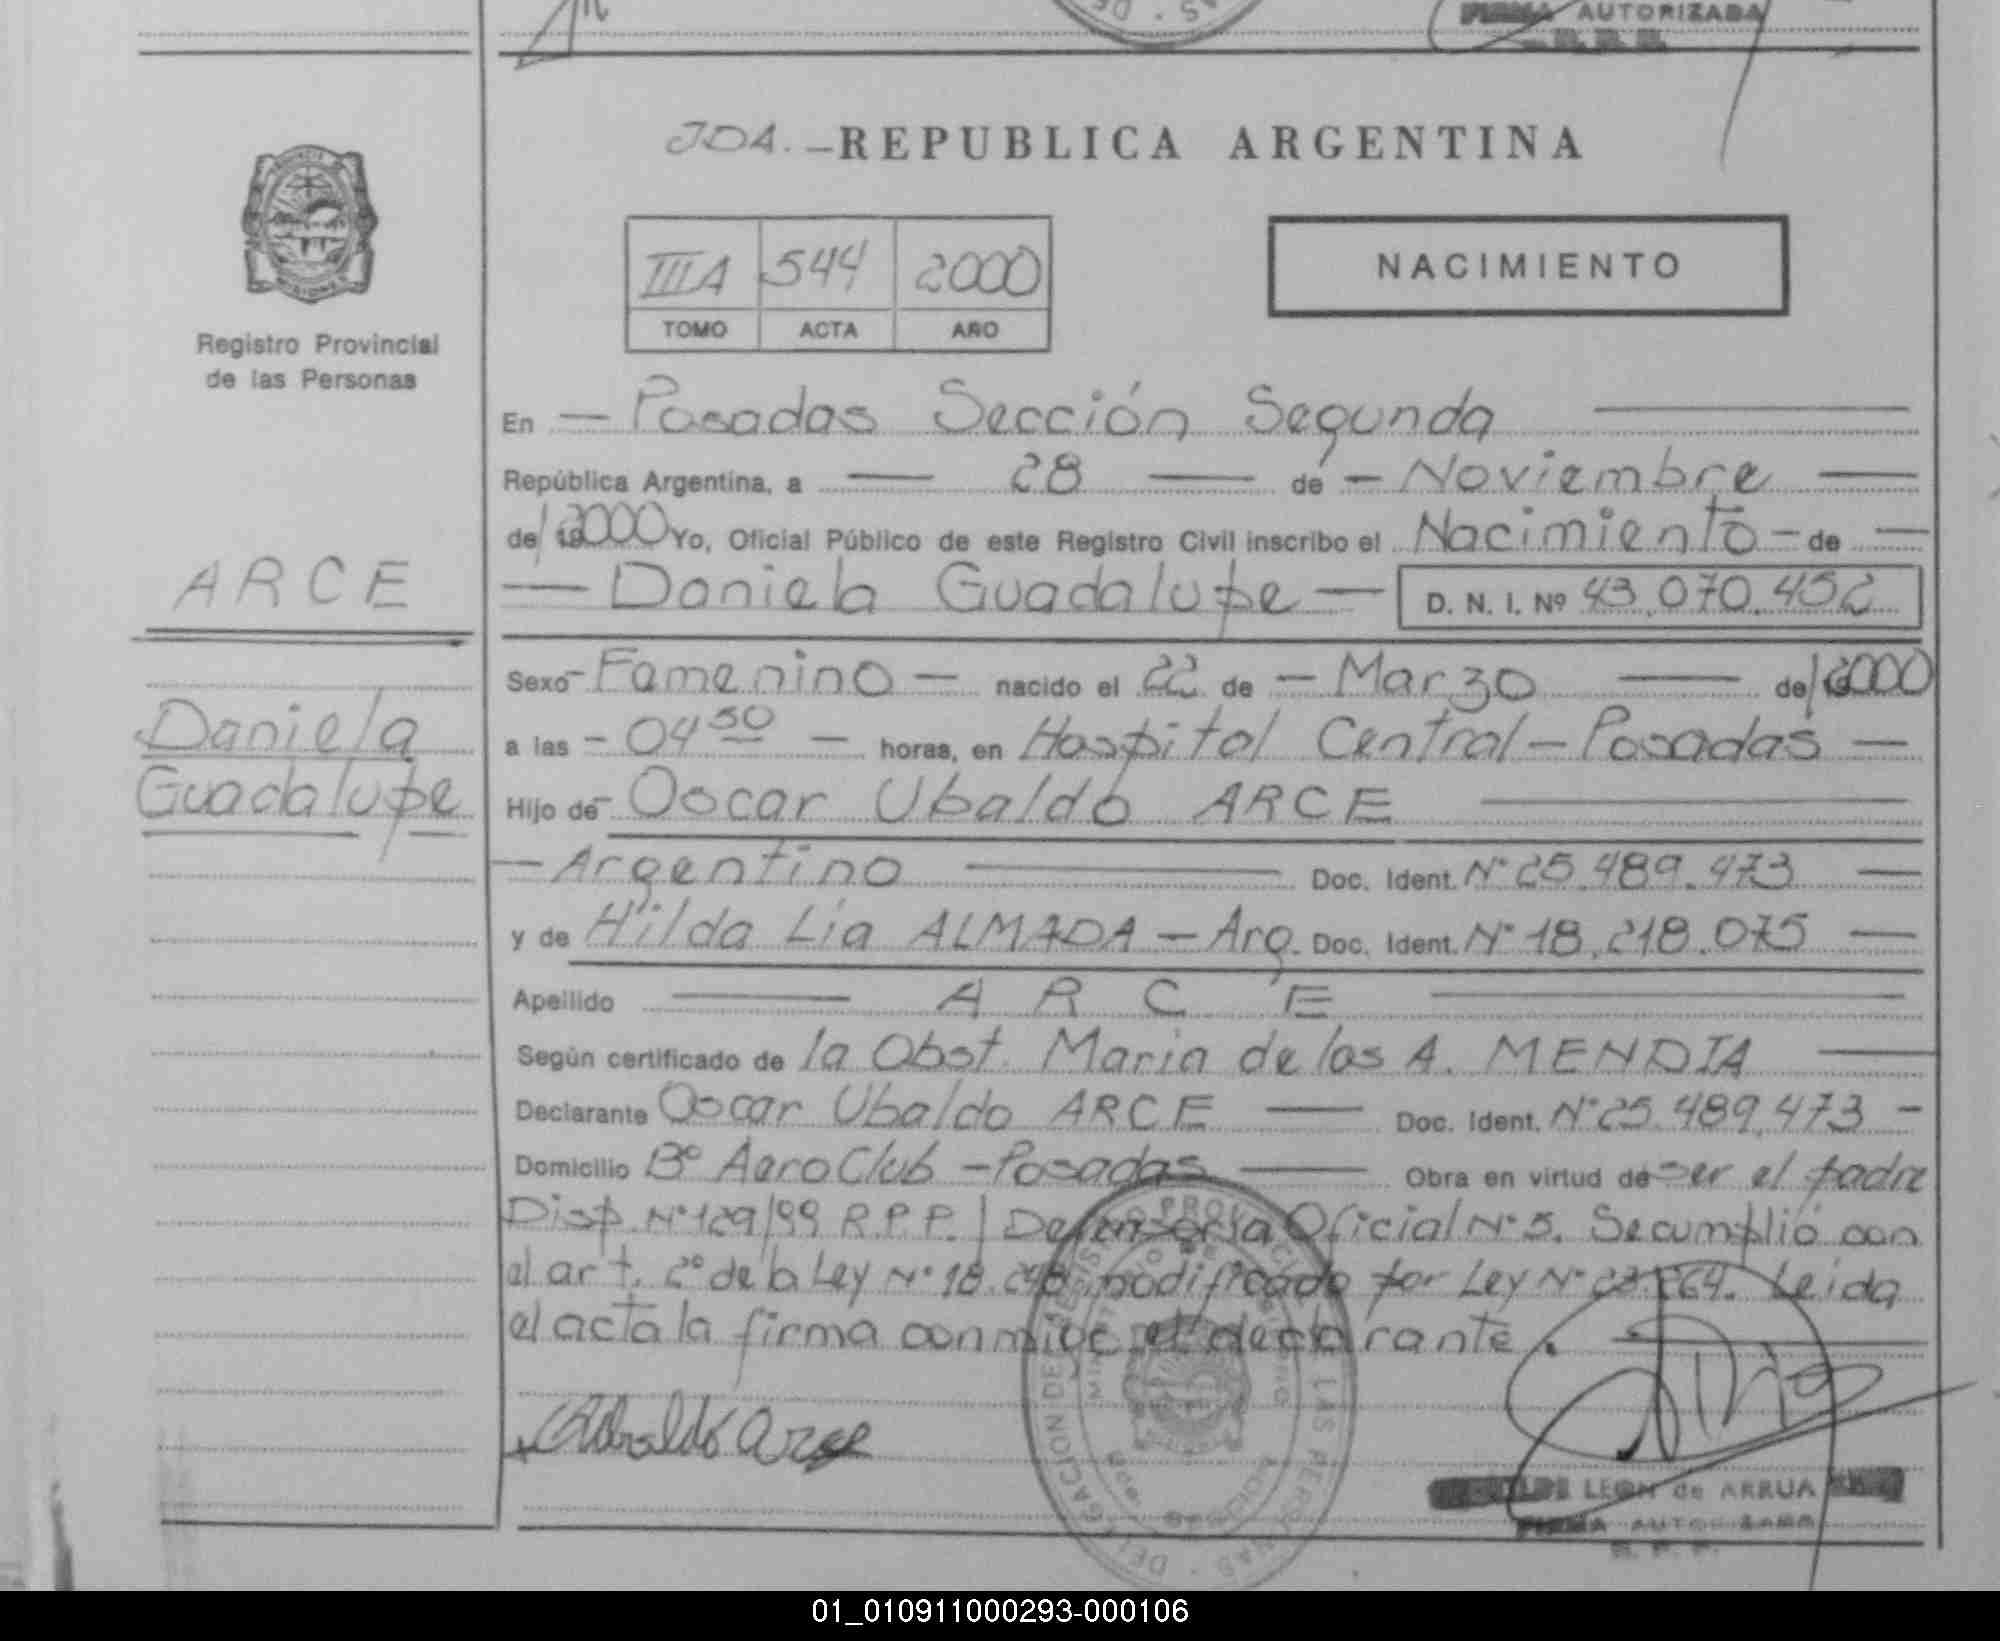 FIRMA AUTORIZADA
JDA.- REPUBLICA ARGENTINA
IIIA 544 2000
TOMO ACTA AÑO
NACIMIENTO
Registro Provincial
de las Personas
ARCE
Daniela
Guadalupe
En - Posadas Sección Segunda
República Argentina, a 28 de - Noviembre
de/19 2000 Yo, Oficial Público de este Registro Civil inscribo el Nacimiento - de
- Daniela Guadalupe - D. N. I. Nº 43.070.452
Sexo - Femenino - nacido el 22 de - Marzo de/19 2000
a las - 04 50 - horas, en Hospital Central - Posadas -
Hijo de - Oscar Ubaldo ARCE
- Argentino Doc. Ident. Nº 25.489.473
y de Hilda Lia ALMADA - Arg. Doc. Ident. Nº 18.218.075
Apellido A R C E
Según certificado de la Obst. Maria de los A. MENDIA
Declarante Oscar Ubaldo ARCE Doc. Ident. Nº 25.489.473 -
Domicilio Bº AeroClub - Posadas Obra en virtud de ser el padre
Disp. Nº 129/99 R.P.P. / Defensoria Oficial Nº 5. Se cumplió con
el art. 2º de la Ley Nº 18.248 modificado por Ley Nº 23.264. Leida
el acta la firma conmigo el declarante.
Ubaldo Arce
DELEGACION DE REGISTRO PROVINCIAL DE LAS PERSONAS
LEON de ARRUA
FIRMA AUTORIZADA
R. P. P.
01_010911000293-000106